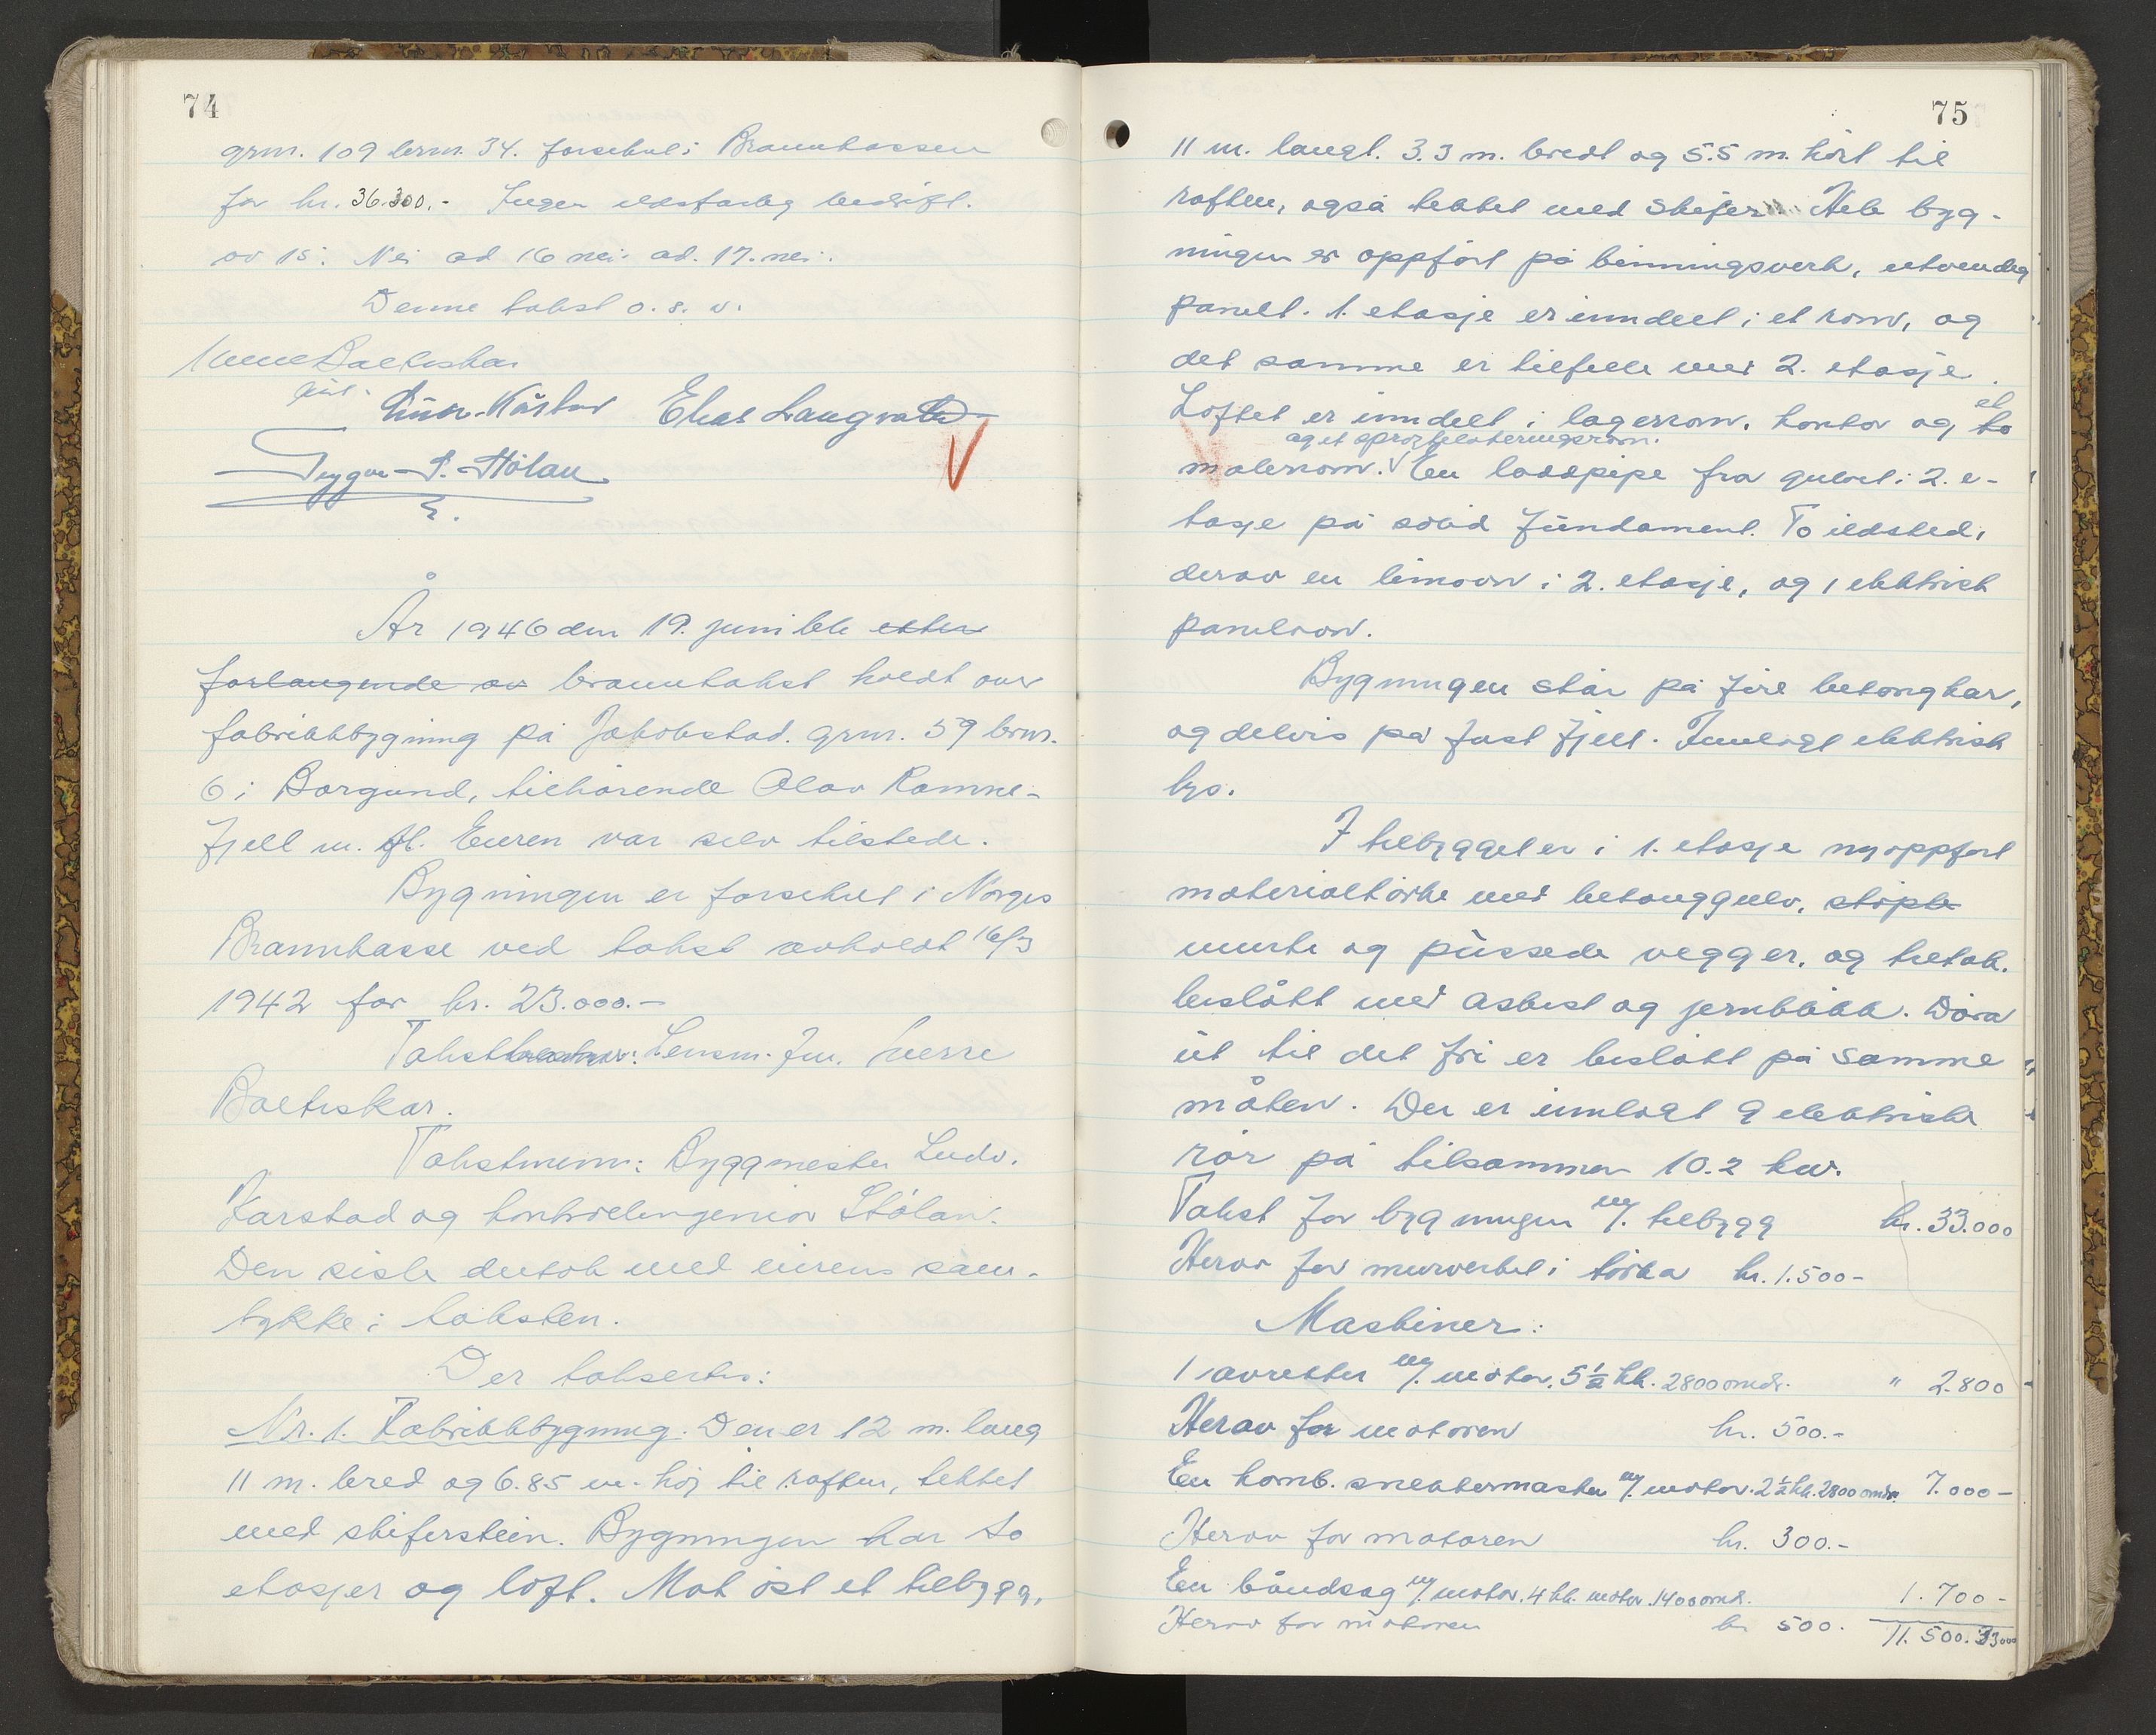 74
grnr. 109 brnr. 34. forsikret i Brannkassen
for kr. 36.300.- Ingen ildsfarlig bedrift.
av 15: Nei ad 16 nei. ad. 17. nei.
Denne takst o. s. v.
Balteskar
Karstad Elias Langva
P. Hólan
År 1946 den 19. juni ble etter
forlangende av branntakst holdt over
fabrikkbygning på Jakobstad. grnr. 59 brnr.
6 i Borgund, tilhörende Olav Ramne-
fjell m. fl. Eieren var selv tilstede.
Bygningen er forsikret i Norges
Brannkasse ved takst avholdt 16/3
1942 for kr. 23.000.-
Takst Lensm. fm. Sverre
Balteskar.
Takstmenn: Byggmester Ludv.
Karstad og kontrollingeniör Hólan.
Den siste deltok med eierens sam-
tykke i taksten.
Der takserters:
Nr. 1. Fabrikkbygning. Den er 12 m. lang
11 m. bred og 6.85 m. höj til raften, tekket
med skiferstein. Bygningen har to
etasjer og loft. Mot öst et tilbygg,
75
11 m. langt. 3.3 m. bredt og 5.5 m. höit til
raften, også tekket med skifer. Hele byg-
ningen er oppfört på binningsverk, utvendig
panelt. 1. etasje er inndelt i et rom, og
det samme er tilfelle med 2. etasje.
et
Loftet er inndelt i lagerrom, kontor og to
og et spröytelakeringsrom.
malerrom. √ En loddpipe fra gulvet i 2. e-
tasje på solid fundament. To ildsted,
derav en limovn i 2. etasje, og 1 elektrisk
panelovn.
Bygningen står på fire betongkar,
og delvis på fast fjell. Innlagt elektrisk
lys.
I tilbygget er i 1. etasje ny oppfört
materialtörke med betonggulv, stöpte
murte og püssede vegger, og tretak.
beslått med asbest og jernblikk. Döra
üt til det fri er beslått på samme
måten. Der er innlagt 9 elektriske
rör på tilsammen 10.2 kw.
Takst for bygningen m/. tilbygg kr. 33.000
Herav for murverket i törka kr. 1.500-
Maskiner:
1 avretter m/. motor. 5½ hk. 2800 omdr. " 2.800-
Herav for motoren kr. 500.-
En komb. snekkermaskin m/. motor. 2½ hk. 2800 omdr. 7.000-
Herav for motoren kr. 300.-
En båndsag m/. motor. 4 hk. motor. 1400 omdr. 1.700-
Herav for motoren kr 500. 11.500. 33000